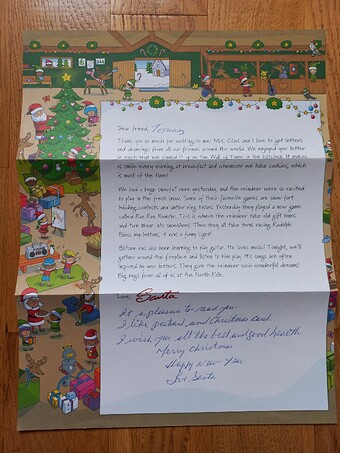 Dear friend, Tomas
Thank you so much for writing to me! Mrs. Claus and I love to get letters
and drawings from all our friends around the world. We enjoyed your letter
so much that we pinned it up on the Wall of Fame in the kitchen. It makes
us smile every morning at breakfast and whenever we bake cookies, which
is most of the time!
We had a huge snowfall here yesterday and the reindeer were so excited
to play in the fresh snow. Some of their favorite games are snow fort
building contests and antler ring tosses. Yesterday they played a new game
called Run Run Rudolph. This is where the reindeer take old gift boxes
and turn them into snowshoes. Then they all take turns racing Rudolph.
Bless my buttons, it was a funny sight!
Blitzen has also been learning to play guitar. He loves music! Tonight, we'll
gather around the fireplace and listen to him play. His songs are often
inspired by your letters. They give the reindeer such wonderful dreams!
Big hugs from all of us at the North Pole.
Love, Santa
It a pleasure to read you.
I like postcard and Christmas card.
I wish you all the best and good health.
Merry christmas
Happy new Year
Love Santa